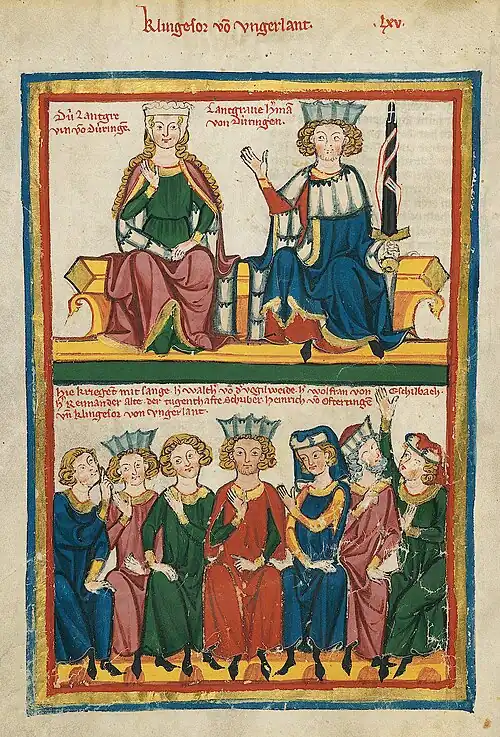 Klingesor võ vngerlant.
.lxv.
Dú Lantgre
vin võ Dúringe.
Lantgraue h'mã
von Dúringen.
Hie kriegēt mit sange. h' walth' võ d' vogilweide. h' wolfran von Eschilbach.
h' Reinander alte. der tugenthafte schriber. heinrich võ Ofteringē
vñ klingesor von vngerlant.